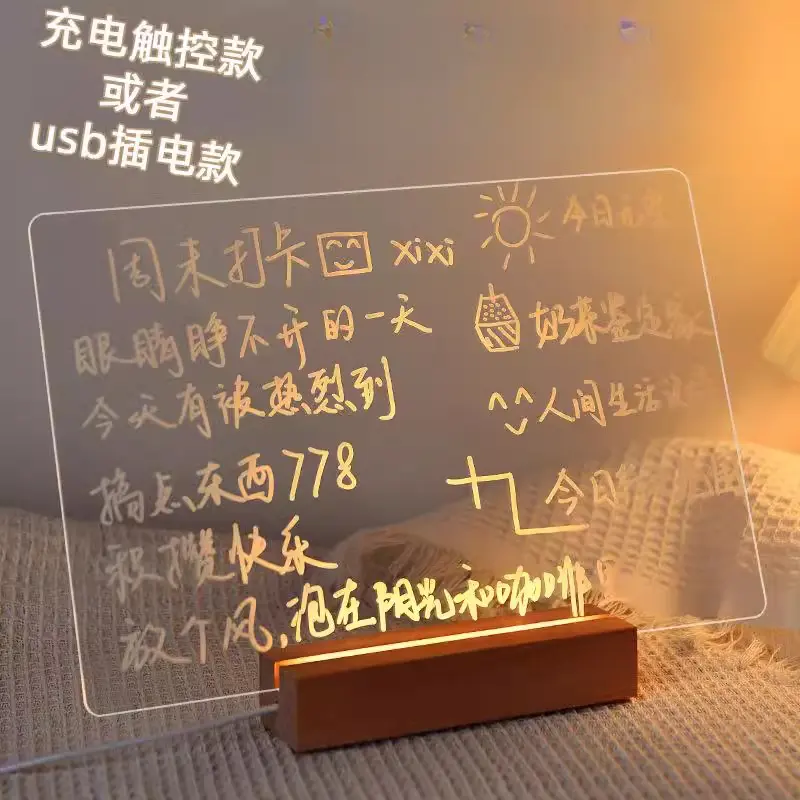 充电触控款
或者
usb插电款
周末打卡 xixi
眼睛睁不开的一天
今天有被热烈到
搞点东西778
积攒快乐
放个风,泡在阳光和咖啡
今日
奶茶鉴定家
人间生活
今日